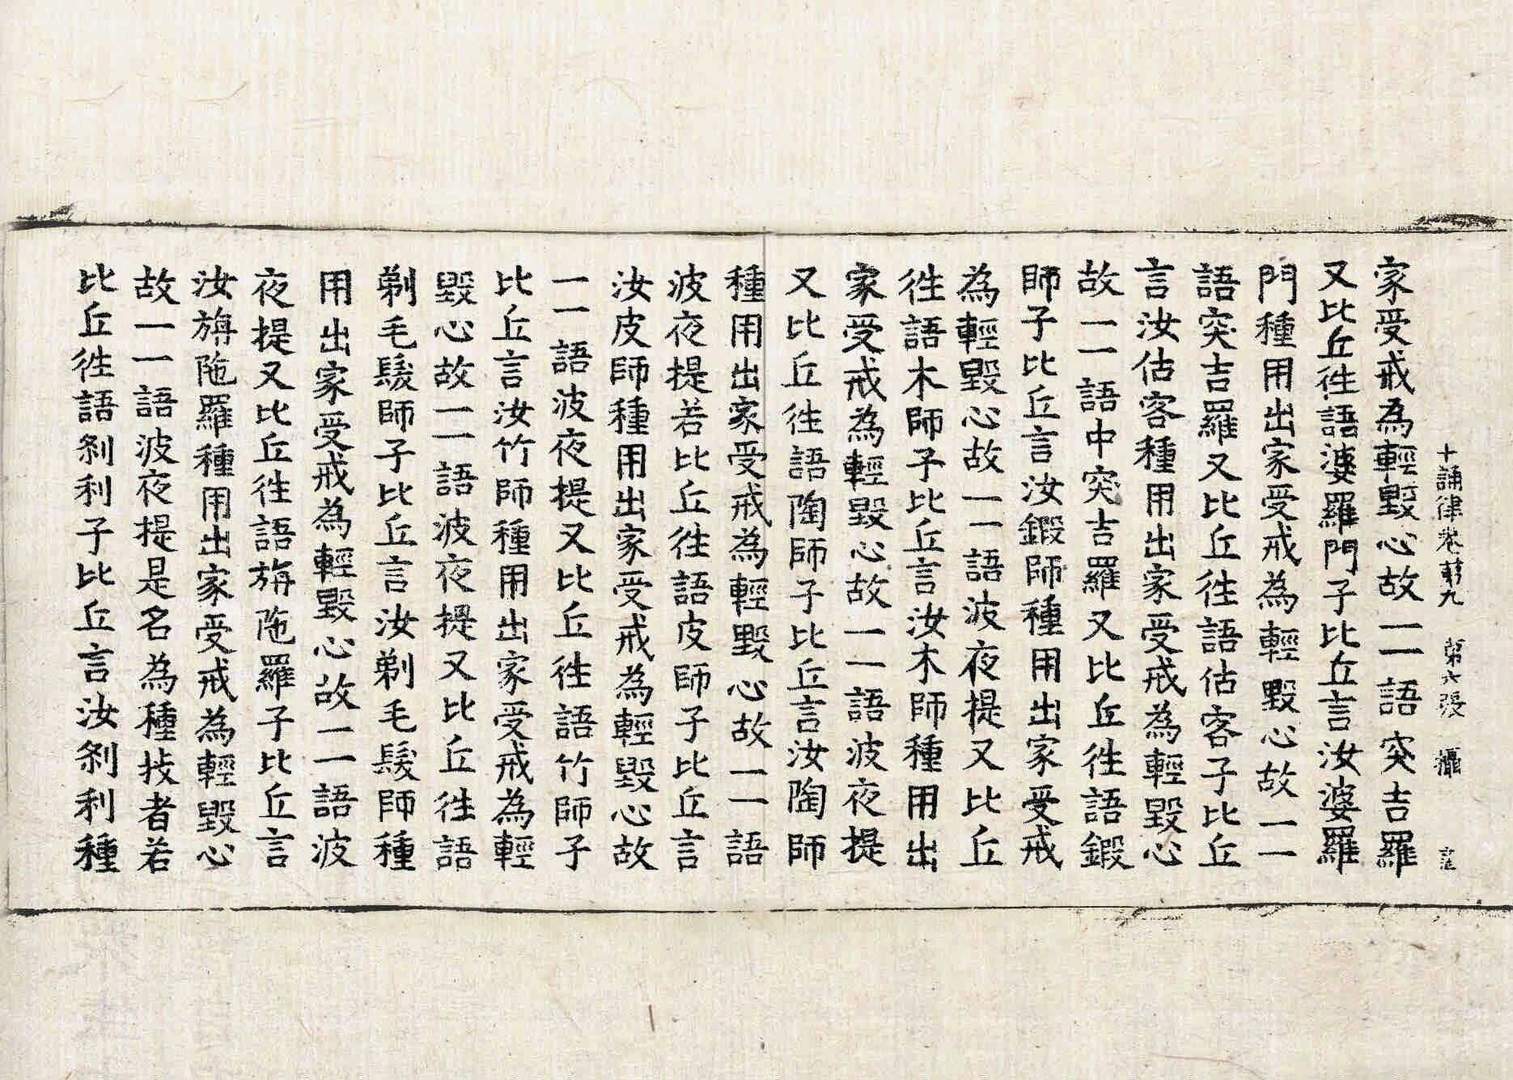 十誦律卷第九 第六張 攝
家受戒為輕毀心故一一語突吉羅
又比丘往語婆羅門子比丘言汝婆羅
門種用出家受戒為輕毀心故一一
語突吉羅又比丘往語估客子比丘
言汝估客種用出家受戒為輕毀心
故一一語中突吉羅又比丘往語鍛
師子比丘言汝鍛師種用出家受戒
為輕毀心故一一語波夜提又比丘
徃語木師子比丘言汝木師種用出
家受戒為輕毀心故一一語波夜提
又比丘往語陶師子比丘言汝陶師
種用出家受戒為輕毀心故一一語
波夜提若比丘往語皮師子比丘言
汝皮師種用出家受戒為輕毀心故
一一語波夜提又比丘徃語竹師子
比丘言汝竹師種用出家受戒為輕
毀心故一一語波夜提又比丘往語
剃毛髮師子比丘言汝剃毛髮師種
用出家受戒為輕毀心故一一語波
夜提又比丘往語旃陁羅子比丘言
汝旃陁羅種用出家受戒為輕毀心
故一一語波夜提是名為種技者若
比丘徃語剎利子比丘言汝剎利種